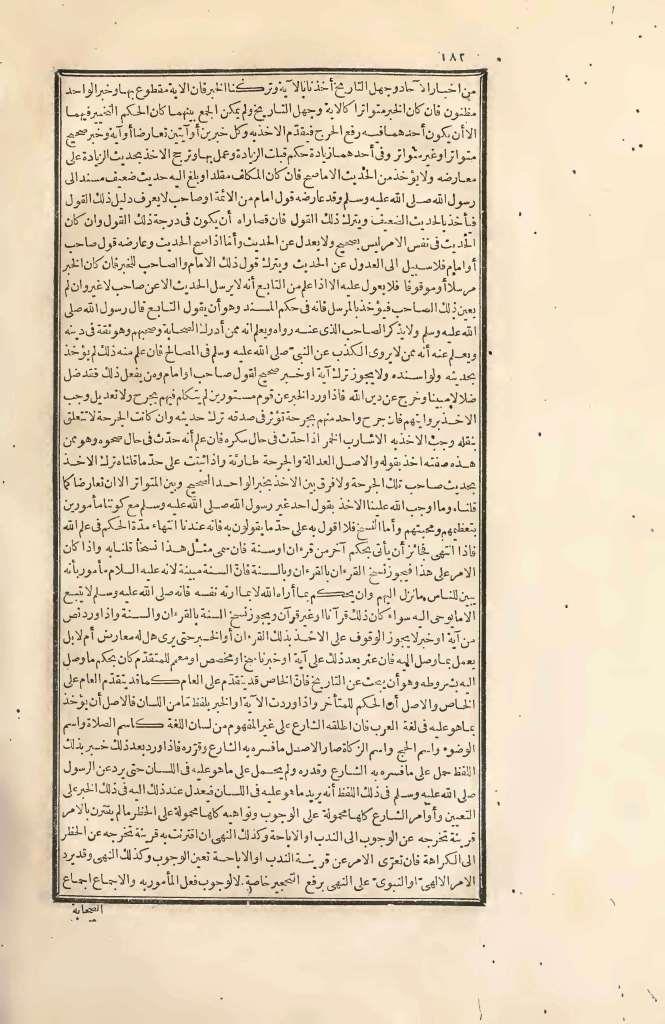 ١٨٢
من اخبار الآحاد وجهل التاريخ أخذنا بالآية وتركنا الخبر فان الآية مقطوع بها وخبر الواحد
مظنون فان كان الخبر متواترا كالآية وجهل التاريخ ولم يمكن الجمع بينهما كان الحكم التخيير فيهما
الا أن يكون أحدهما فيه رفع الحرج فيقدّم الاخذ به وكل خبرين أو آيتين تعارضا أو آية وخبر صحيح
متواترا وغير متواتر وفى أحدهما زيادة حكم قبلت الزيادة وعمل بها وترجح الاخذ بحديث الزيادة على
معارضه ولا يؤخذ من الحديث الا ما صح فان كان المكلف مقلدا وبلغ اليه حديث ضعيف مسند الى
رسول الله صلى الله عليه وسلم وقد عارضه قول امام من الائمة أو صاحب لا يعرف دليل ذلك القول
فيأخذ بالحديث الضعيف ويترك ذلك القول فان قصاراه أن يكون فى درجة ذلك القول وان كان
الحديث فى نفس الامر ليس بصحيح ولا يعدل عن الحديث وأما اذا صح الحديث وعارضه قول صاحب
أو امام فلا سبيل الى العدول عن الحديث ويترك قول ذلك الامام والصاحب للخبر فان كان الخبر
مرسلا أو موقوفا فلا يعول عليه الا اذا علم من التابع أنه لا يرسل الحديث الا عن صاحب لا غير وان لم
يعين ذلك الصاحب فيؤخذ بالمرسل فانه فى حكم المسند وهو أن يقول التابع قال رسول الله صلى
الله عليه وسلم ولا يذكر الصاحب الذى عنه رواه ويعلم انه ممن أدرك الصحابة وصحبهم وهو ثقة فى دينه
ويعلم عنه أنه ممن لا يروى الكذب عن النبىّ صلى الله عليه وسلم فى المصالح فان علم منه ذلك لم يؤخذ
بحديثه ولو أسنده ولا يجوز ترك آية أو خبر صحيح لقول صاحب أو امام ومن يفعل ذلك فقد ضل
ضلالا مبينا وخرج عن دين الله فاذا ورد الخبر عن قوم مستورين لم يتكلم فيهم بجرح ولا تعديل وجب
الاخذ بروايتهم فان جرح واحد منهم بجرحة تؤثر فى صدقه ترك حديثه وان كانت الجرحة لا تتعلق
بنقله وجب الاخذ به الا شارب الخمر اذا حدّث فى حال سكره فان علم أنه حدّث فى حال صحوه وهو ممن
هذه صفته أخذ بقوله والاصل العدالة والجرحة طارئة واذا ثبتت على حدّ ما قلناه ترك الاخذ
بحديث صاحب تلك الجرحة ولا فرق بين الاخذ بخبر الواحد الصحيح وبين المتواتر الا ان تعارضا كما
قلناه وما أوجب الله علينا الاخذ بقول أحد غير رسول الله صلى الله عليه وسلم مع كوننا مأمورين
بتعظيمهم ومحبتهم وأما النسخ فلا أقول به على حدّ ما يقولون به فانه عندنا انتهاء مدّة الحكم فى علم الله
فاذا انتهى فجائز أن يأتى بحكم آخر من قرءان أو سنة فان سمى مثل هذا نسخا قلنا به واذا كان
الامر على هذا فيجوز نسخ القرءان بالقرءان وبالسنة فانّ السنة مبينة لانه عليه السلام مأمور بأنه
يبين للناس ما نزل اليهم وان يحكم بما أراه الله لا بما أرته نفسه فانه صلى الله عليه وسلم لا يتبع
الا ما يوحى اليه سواء كان ذلك قرآنا أو غير قرآن ويجوز نسخ السنة بالقرءان والسنة واذا ورد نص
من آية أو خبر لا يجوز الوقوف على الاخذ بذلك القرءان أو الخبر حتى يرى هل له معارض أم لا بل
يعمل بما وصل اليه فان عثر بعد ذلك على آية أو خبر ناسخ أو مخصص أو معمم للمتقدّم كان بحكم ما وصل
اليه بشروطه وهو أن يبحث عن التاريخ فانّ الخاص قد يتقدّم على العام كما قد يتقدّم العام على
الخاص والاصل أنّ الحكم للمتأخر واذا وردت الآية أو الخبر بلفظ ما من اللسان فالاصل أن يؤخذ
بما هو عليه فى لغة العرب فان أطلقه الشارع على غير المفهوم من لسان اللغة كاسم الصلاة واسم
الوضوء واسم الحج واسم الزكاة صار الاصل ما فسره به الشارع وقرّره فاذا ورد بعد ذلك خبر بذلك
اللفظ حمل على ما فسره به الشارع وقدره ولم يحمل على ما هو عليه فى اللسان حتى يرد عن الرسول
صلى الله عليه وسلم فى ذلك اللفظ أنه يريد ما هو عليه فى اللسان فيعدل عند ذلك اليه فى ذلك الخبر على
التعيين وأوامر الشارع كلها محمولة على الوجوب ونواهيه كلها محمولة على الحظر ما لم يقترن بالامر
قرينة تخرجه عن الوجوب الى الندب أو الاباحة وكذلك النهى ان اقترنت به قرينة تخرجه عن الحظر
الى الكراهة فان تعرّى الامر عن قرينة الندب أو الاباحة تعين الوجوب وكذلك النهى وقد يرد
الامر الالهىّ أو النبوىّ على النهى برفع التحجير خاصة لا لوجوب فعل المأمور به والاجماع اجماع
الصحابة